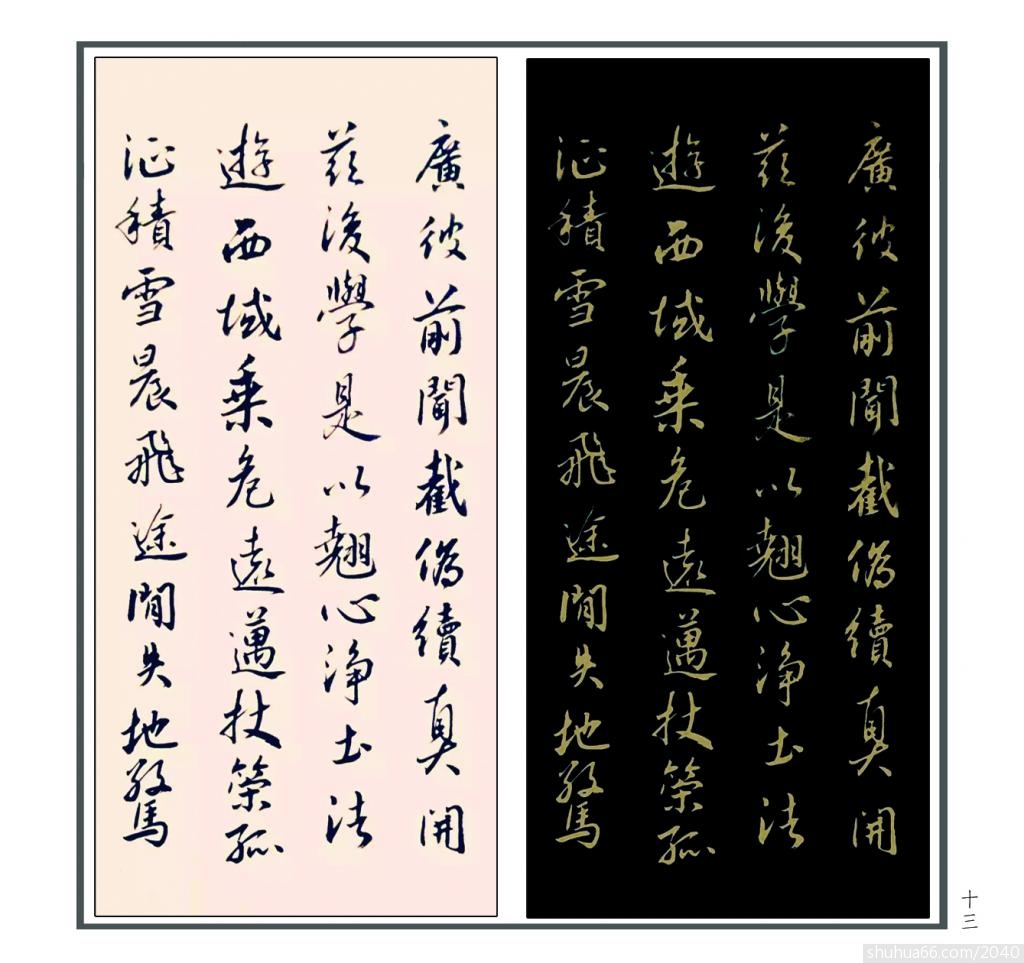 廣彼前聞截偽續真開
茲後學是以翹心淨土法
遊西域乘危遠邁杖策孤
征積雪晨飛途閒失地驚
廣彼前聞截偽續真開
茲後學是以翹心淨土法
遊西域乘危遠邁杖策孤
征積雪晨飛途閒失地驚
十三
shuhua66.com/2040